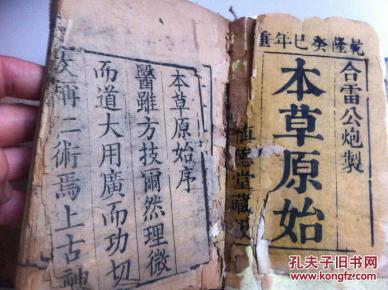 乾隆癸巳年重
合雷公炮製
本草原始
德堂藏
本草原始序
醫雖方技爾然理微
而道大用廣而功切
稱二術焉上古神
孔夫子旧书网